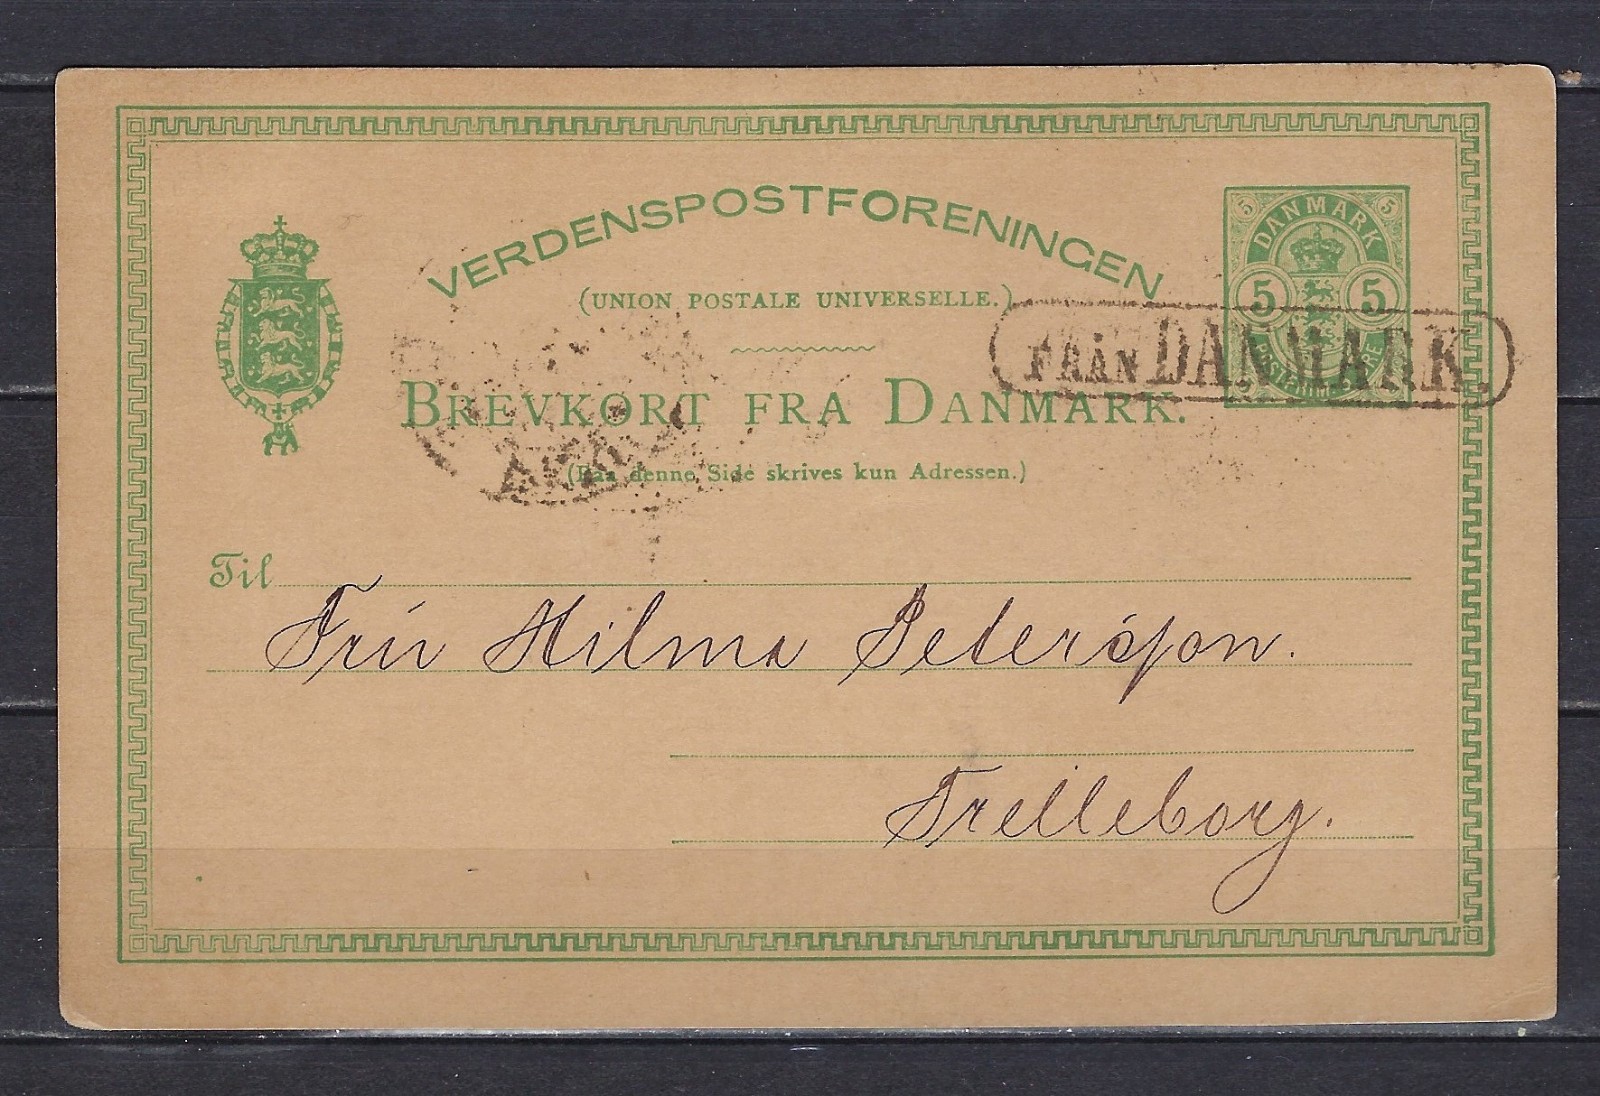 VERDENSPOSTFORENINGEN
(UNION POSTALE UNIVERSELLE.)
BREVKORT FRA DANMARK.
(Paa denne Side skrives kun Adressen.)
5 DANMARK 5
5 5
POSTFRIM. ØRE
FRÅN DANMARK.
Til
Frü Hilma Petersson.
Trelleborg.